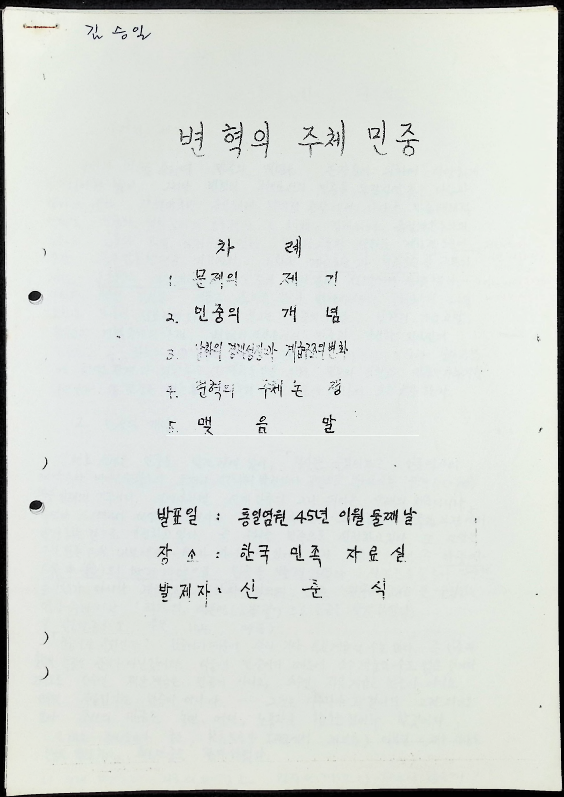 김승일
변혁의 주체 민중
차 례
1. 문제의 제 기
2. 민중의 개 념
3. 남한의 경제성장과 계급구조의 변화
4. 변혁의 주체 논 쟁
5. 맺 음 말
발표일 : 통일염원 45년 이월 둘째날
장 소 : 한국 민족 자료 실
발제자 : 신 춘 식